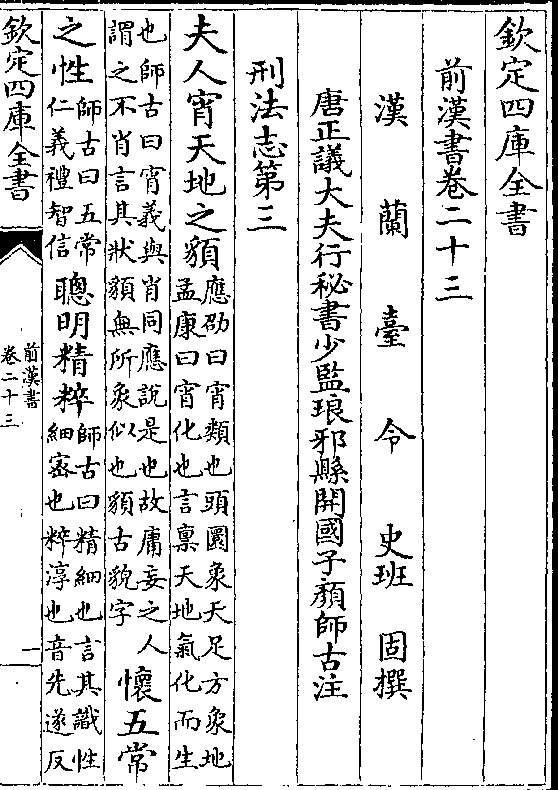 欽定四庫全書
前漢書卷二十三
漢蘭臺令史班固撰
唐正議大夫行秘書少監琅邪縣開國子顏師古注
刑法志第三
夫人宵天地之䫉應劭曰宵類也頭圜象天足方象地孟康曰宵化也言稟天地氣化而生
也師古曰宵義與肖同應說是也故庸妄之人謂之不肖言其狀䫉無所象似也䫉古貌字懷五常
之性師古曰五常仁義禮智信聰明精粹師古曰精細也言其識性細宻也粹淳也音先遂反
欽定四庫全書
前漢書
卷二十三
一